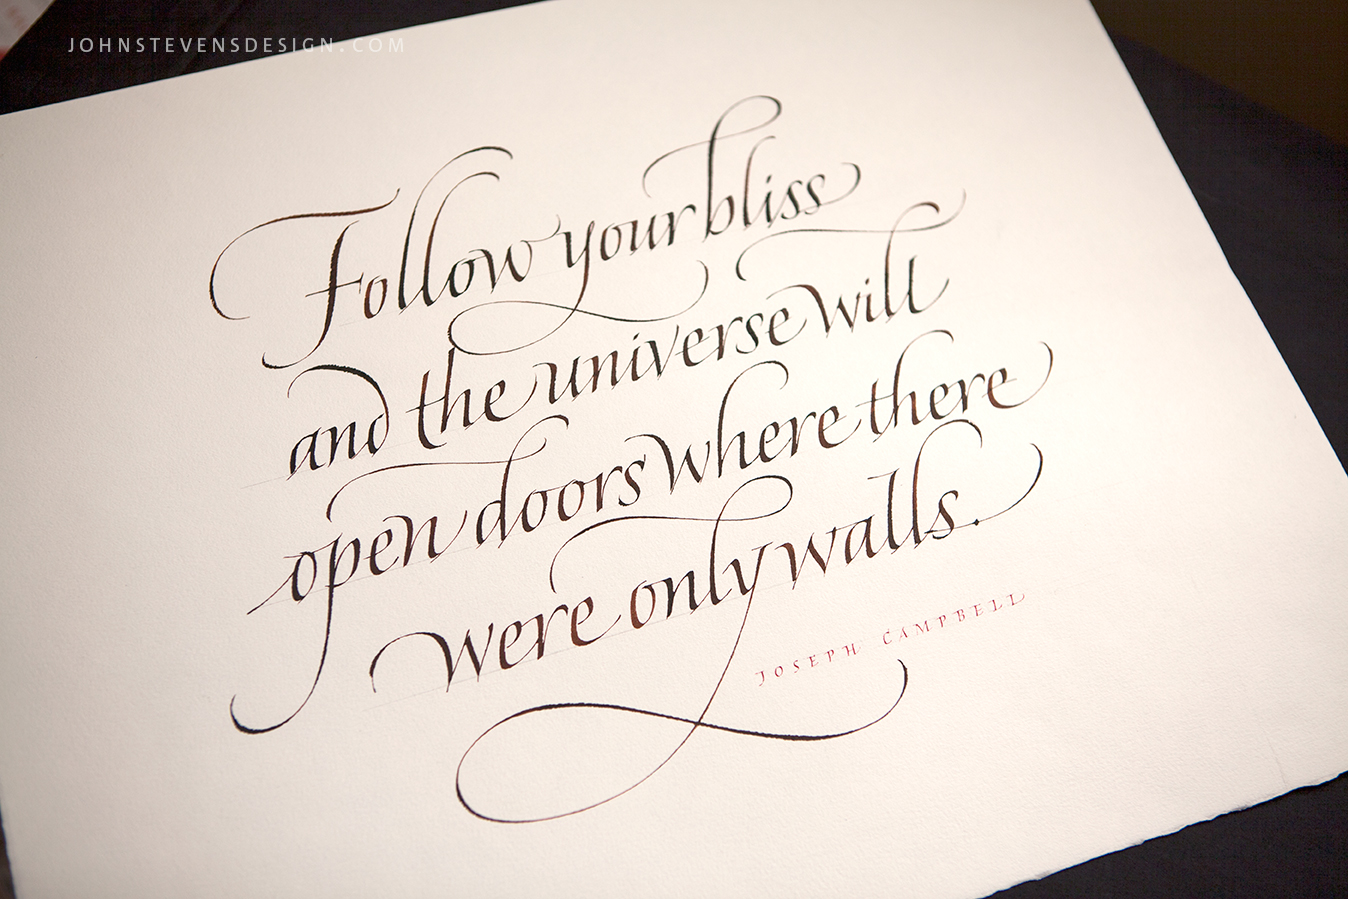 JOHNSTEVENSDESIGN.COM
Follow your bliss
and the universe will
open doors where there
were only walls.
JOSEPH CAMPBELL